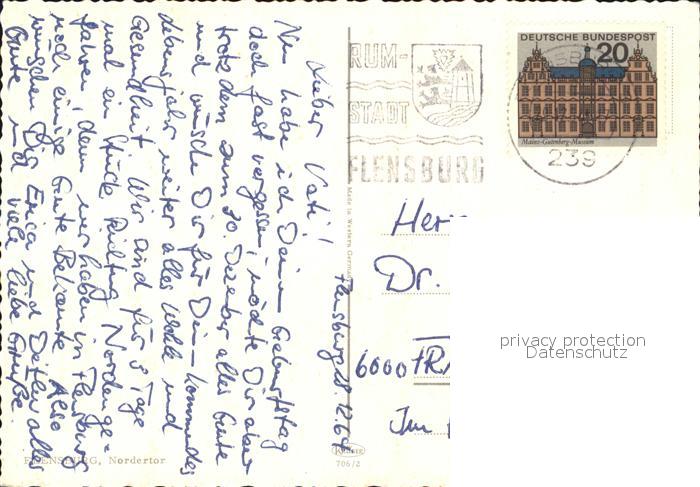 Flensburg, 12.64
Lieber Vati!
Nun habe ich Deinen Geburtstag
doch fast vergessen, möchte Dir aber
trotzdem zum 30. Dezember alles Gute
und wünsche Dir für Dein kommendes
Lebensjahr weiter alles Wohle und
Gesundheit. Wir sind für 3 Tage
mal ein Stück Richtung Norden ge-
fahren, denn wir haben in Flensburg
noch einige Gute Bekannte. Also
wünschen Dir Erica und Detlev alles
Gute und viele liebe Grüße.
FLENSBURG, Nordertor
Made in Western Germany
KRÜGER
706/2
RUM-
STADT
FLENSBURG
DEUTSCHE BUNDESPOST
20
Mainz-Gutenberg-Museum
239
Her
Dr.
6000 FRA
Im
privacy protection
Datenschutz